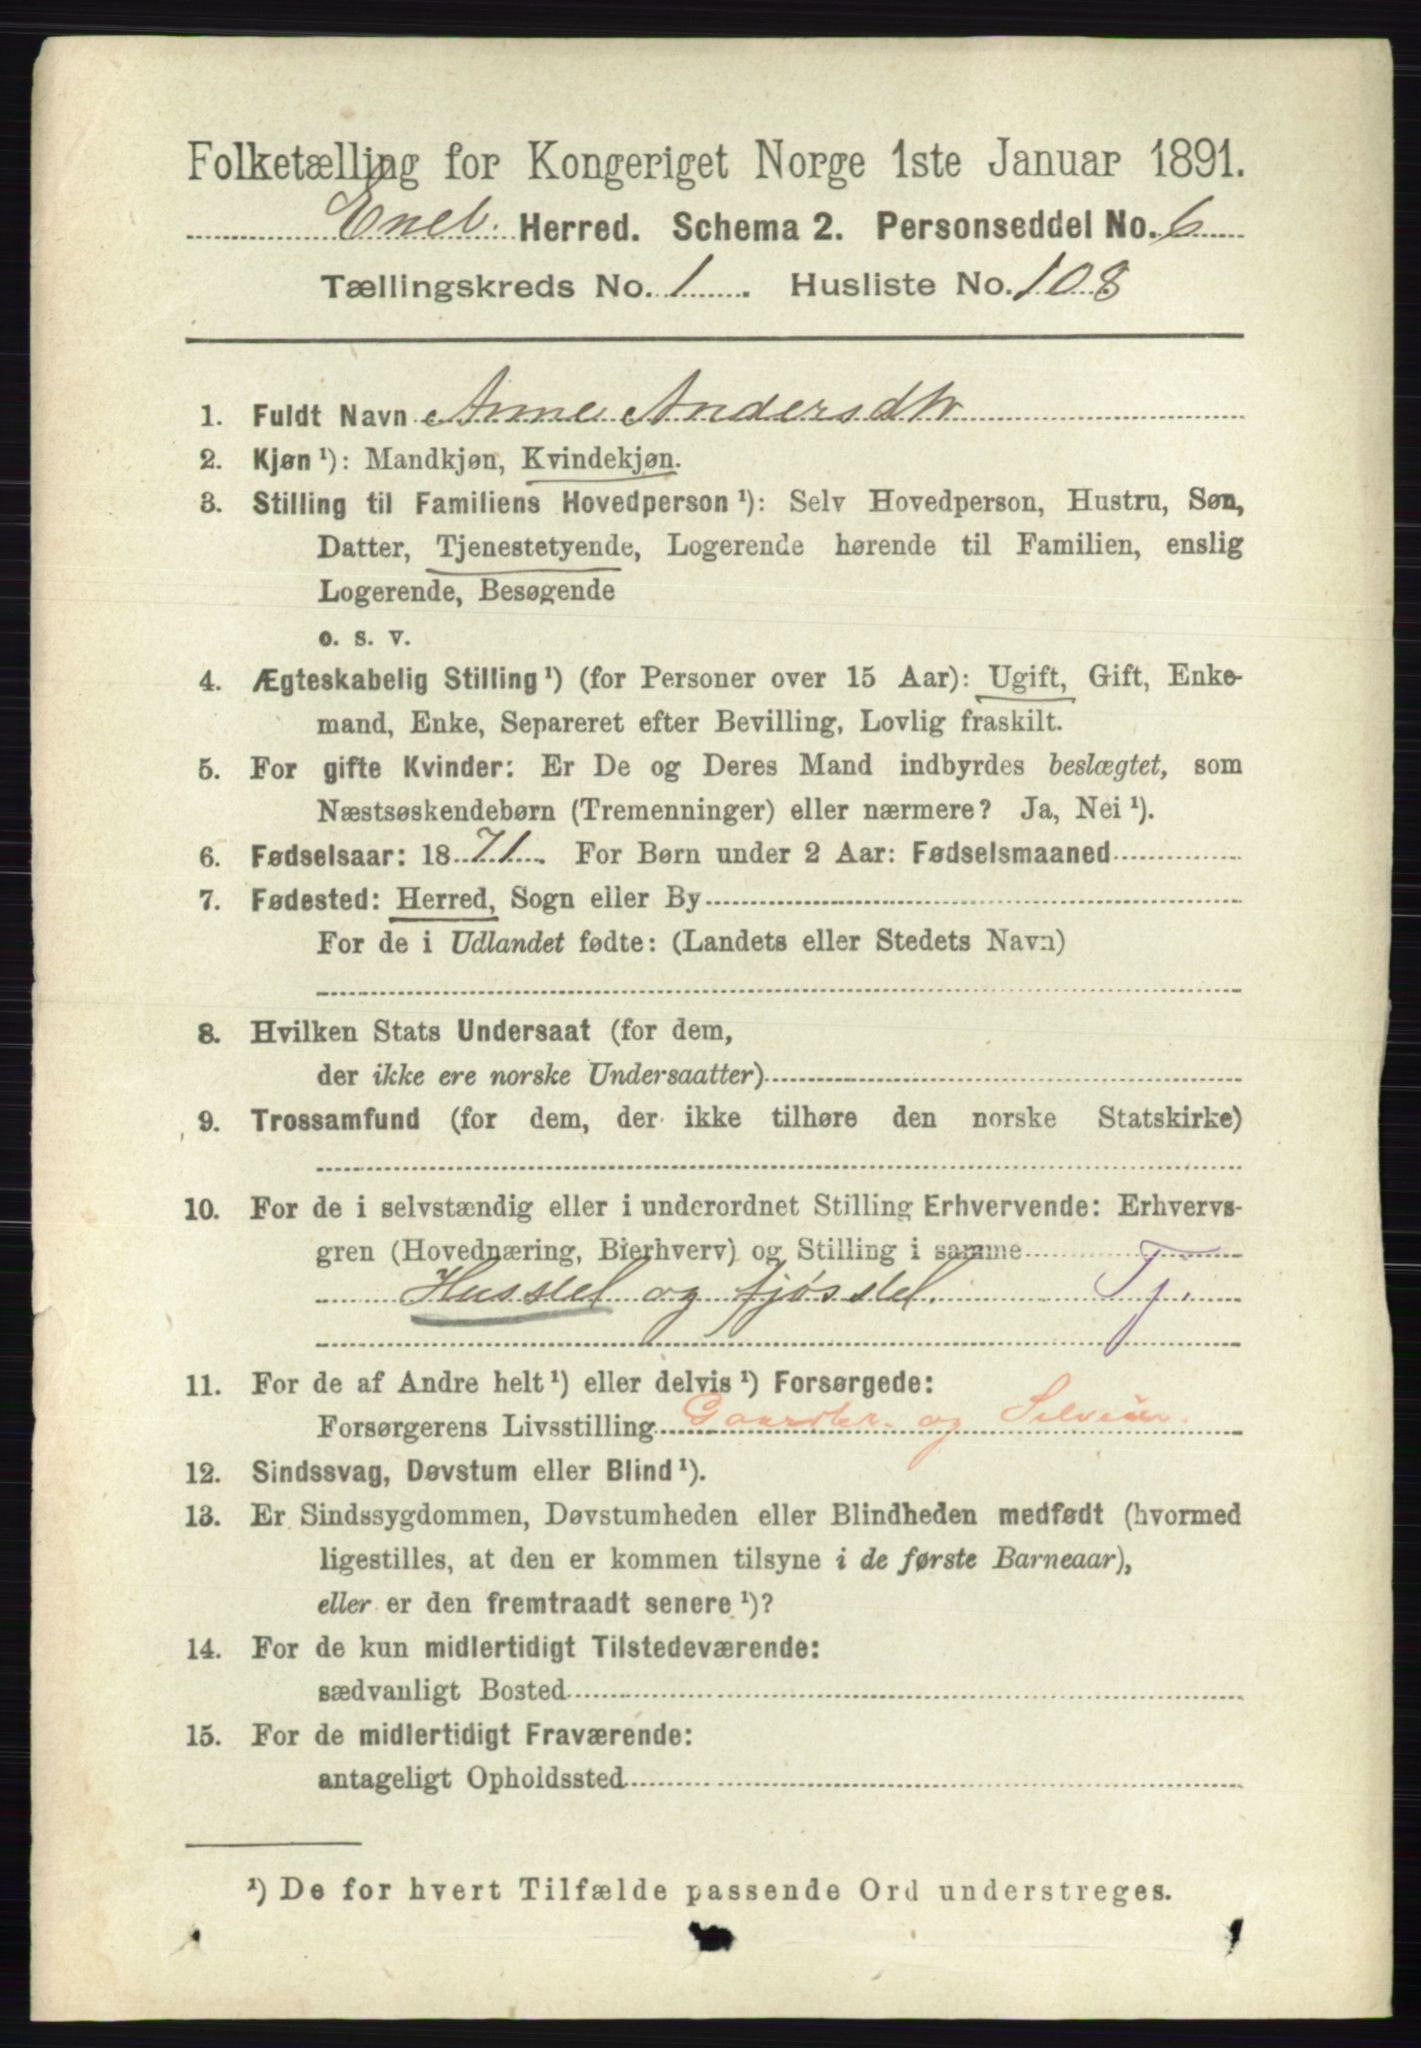 Folketælling for Kongeriget Norge 1ste Januar 1891.
Eneb. Herred. Schema 2. Personseddel No. 6
Tællingskreds No. 1. Husliste No. 108
1. Fuldt Navn Anne Andersdtr
2. Kjøn ¹): Mandkjøn, Kvindekjøn.
3. Stilling til Familiens Hovedperson ¹): Selv Hovedperson, Hustru, Søn,
Datter, Tjenestetyende, Logerende hørende til Familien, enslig
Logerende, Besøgende
o. s. v.
4. Ægteskabelig Stilling ¹) (for Personer over 15 Aar): Ugift, Gift, Enke-
mand, Enke, Separeret efter Bevilling, Lovlig fraskilt.
5. For gifte Kvinder: Er De og Deres Mand indbyrdes beslægtet, som
Næstsøskendebørn (Tremenninger) eller nærmere? Ja, Nei ¹).
6. Fødselsaar: 1871. For Børn under 2 Aar: Fødselsmaaned
7. Fødested: Herred, Sogn eller By
For de i Udlandet fødte: (Landets eller Stedets Navn)
8. Hvilken Stats Undersaat (for dem,
der ikke ere norske Undersaatter)
9. Trossamfund (for dem, der ikke tilhøre den norske Statskirke)
10. For de i selvstændig eller i underordnet Stilling Erhvervende: Erhvervs-
gren (Hovednæring, Bierhverv) og Stilling i samme
Husstel og fjøsstel. Tj.
11. For de af Andre helt ¹) eller delvis ¹) Forsørgede:
Forsørgerens Livsstilling Gaardbr. og Selveier.
12. Sindssvag, Døvstum eller Blind ¹).
13. Er Sindssygdommen, Døvstumheden eller Blindheden medfødt (hvormed
ligestilles, at den er kommen tilsyne i de første Barneaar),
eller er den fremtraadt senere ¹)?
14. For de kun midlertidigt Tilstedeværende:
sædvanligt Bosted
15. For de midlertidigt Fraværende:
antageligt Opholdssted
¹) De for hvert Tilfælde passende Ord understreges.